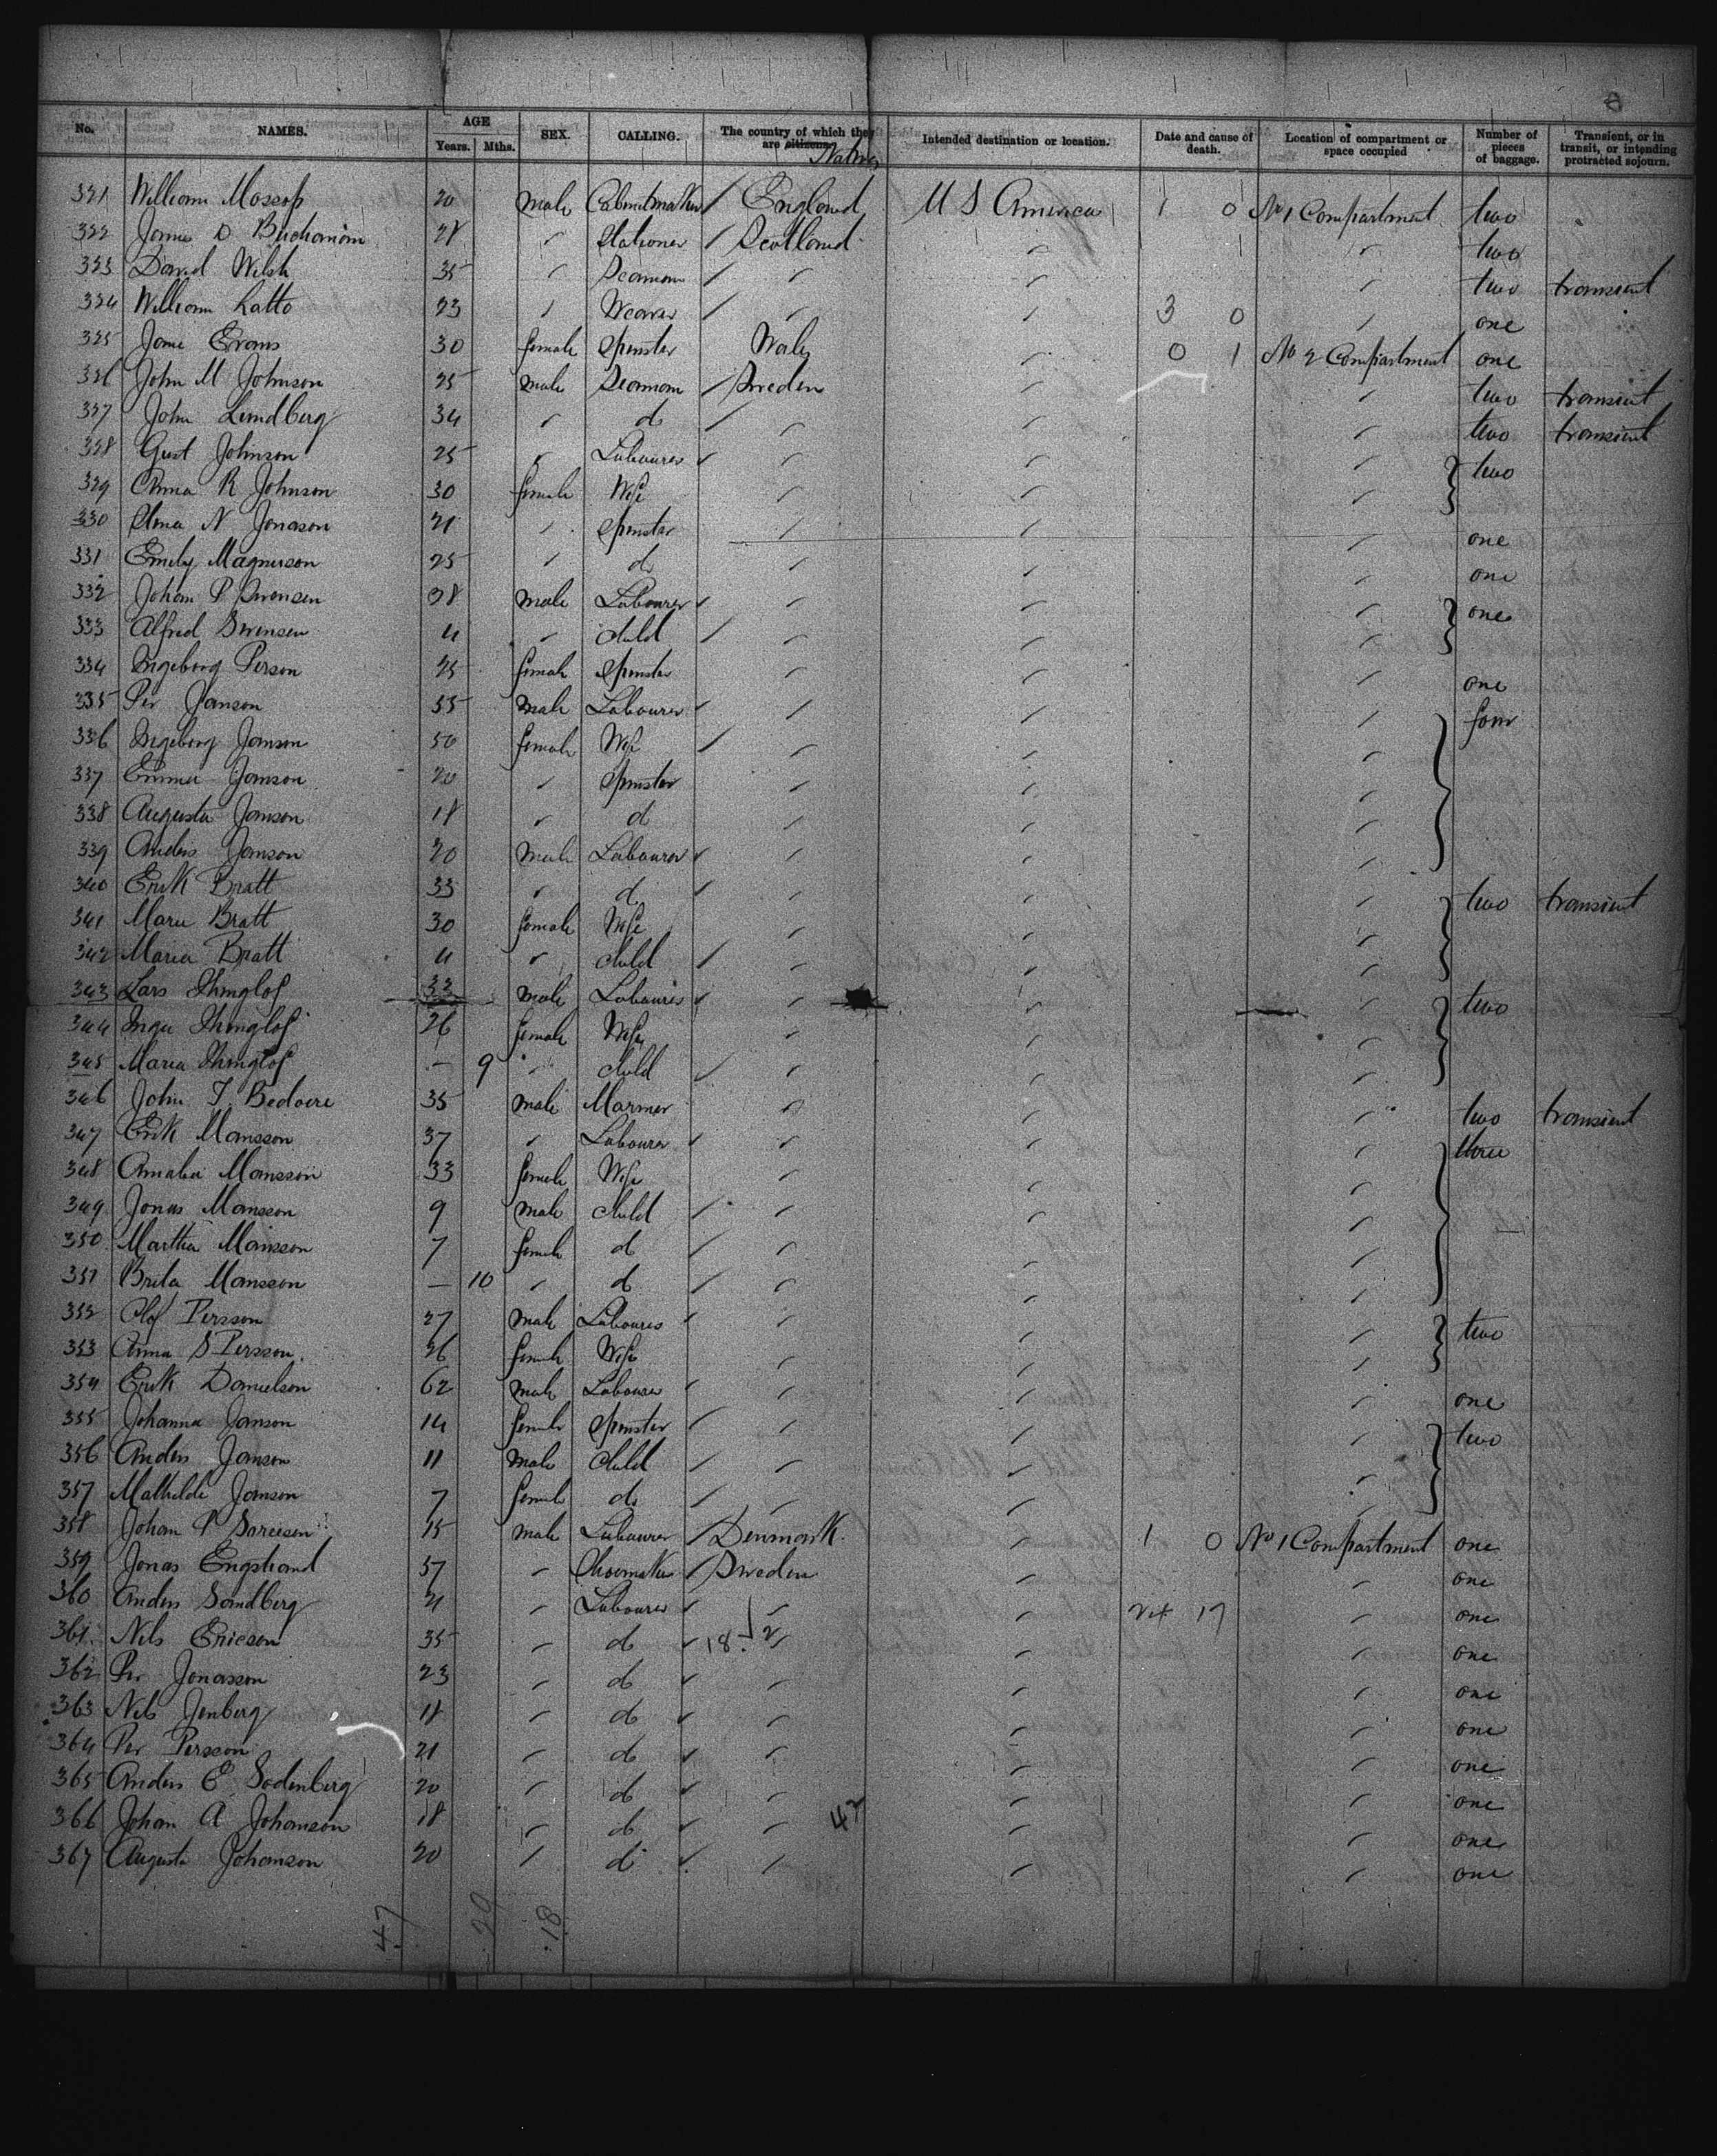 No. NAMES. AGE Years. Mths. SEX. CALLING. The country of which they are citizens. Natives Intended destination or location. Date and cause of death. Location of compartment or space occupied Number of pieces of baggage. Transient, or in transit, or intending protracted sojourn.
321 William Mossop 20 male Cabinetmaker / England U S America 1 0 No 1 Compartment two
322 James D Buchanan 28 " Stationer / Scotland " 1 " two
323 David Welsh 35 " Seaman / " " " two transient
324 William Latto 23 " Weaver / " " 3 0 " one
325 Jane Evans 30 female Spinster Wales " 0 1 No 2 Compartment one
326 John M Johnson 25 male Seaman / Sweden " " two transient
327 John Lundberg 34 " do / " " " two transient
328 Gust Johnson 25 " Labourer / " " " two
329 Anna K Johnson 30 female Wife " " "
330 Alma N Jonason 21 " Spinster " " " one
331 Emily Magnuson 25 " do " " " one
332 Johan P Swensen 38 male Labourer / " " " one
333 Alfred Swensen 4 " child / " " "
334 Ingeborg Person 25 female Spinster " " " one
335 Per Janson 55 male Labourer / " " " four
336 Ingeborg Janson 50 female Wife / " " "
337 Emma Janson 20 " Spinster " " "
338 Augusta Janson 18 " do " " "
339 Anders Janson 20 male Labourer / " " "
340 Erik Bratt 33 " do / " " " two transient
341 Marie Bratt 30 female Wife " " "
342 Maria Bratt 4 " child / " " "
343 Lars 33 male Labourer / " " " two
344 Inga 26 female Wife " " "
345 Maria — 9 " child / " " "
346 John F. Bedoire 35 male Mariner " " " two transient
347 Erik Mansson 37 " Labourer / " " " three
348 Amalia Mansson 33 female Wife " " "
349 Jonas Mansson 9 male child / " " "
350 Martha Mansson 7 female do / " " "
351 Brita Mansson — 10 " do / " " "
352 Olof Persson 27 male Labourer / " " " two
353 Anna S Persson. 26 female Wife " " "
354 Erik Danielson 62 male Labourer / " " " one
355 Johanna Janson 14 female Spinster / " " " two
356 Anders Janson 11 male child / " " "
357 Mathilde Janson 7 female do / " " "
358 Johan P Sorensen 15 male Labourer / Denmark. " 1 0 No 1 Compartment one
359 Jonas Engstrand 37 " Shoemaker / Sweden " " one
360 Anders Sandberg 21 " Labourer / " " 17 " one
361 Nils Ericson 35 " do / 18 " " " one
362 Per Jonasson 23 " do / " " " one
363 Nils Jenberg 18 " do / " " " one
364 Per Persson 21 " do / " " " one
365 Anders E Sodenberg 20 " do / " " " one
366 Johan A Johanson 18 " do / " 42 " " one
367 Augusta Johanson 20 " do / " " " one
47 29 18